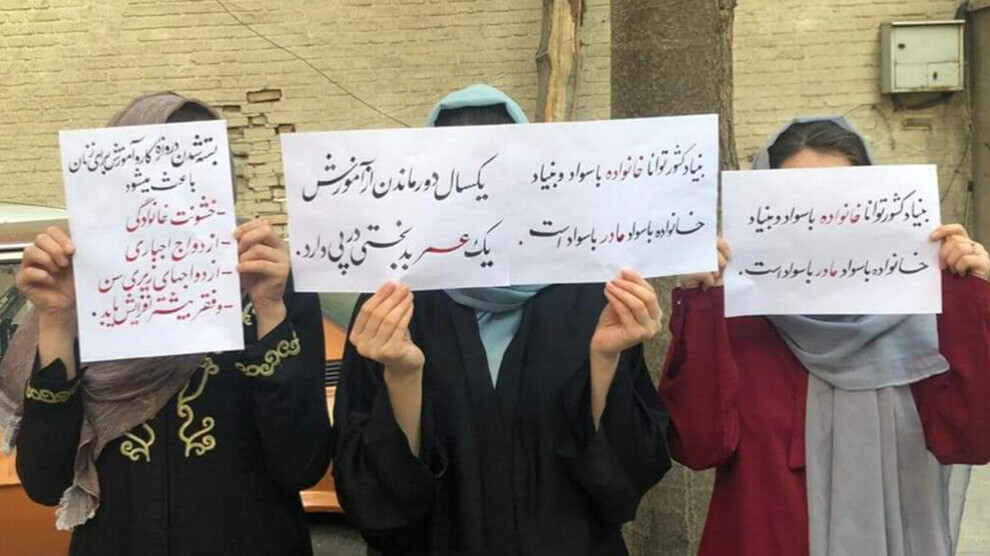 بسته شدن دروازه کاروآموزش برای زنان
باعث میشود
-خشونت خانوادگی
-ازدواج اجباری
-ازدواجهای زیری سن
-وفقر بیشتر افزایش یابد.
یکسال دور ماندن از آموزش
یک عمر بدبختی در پی دارد.
بنیاد کشور توانا خانواده باسواد و بنیاد
خانواده باسواد مادر باسواد است.
بنیاد کشور توانا خانواده باسواد و بنیاد
خانواده باسواد مادر باسواد است.